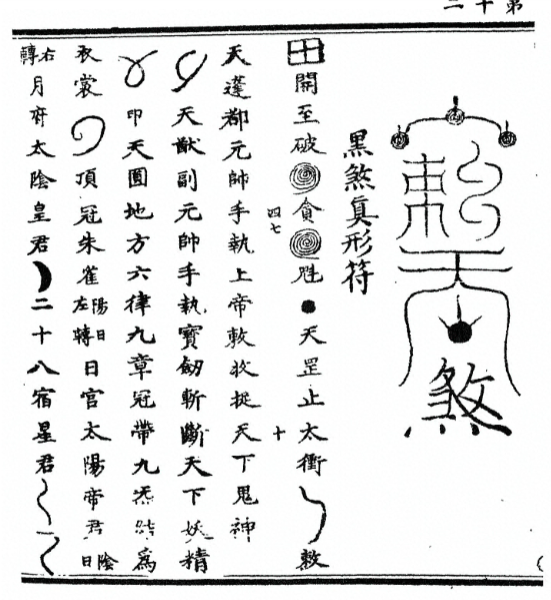 第十二
煞
黑煞眞形符
田開至破貪魁●天罡止太衝敕
四七
十
天蓬都元帥手執上帝敕收捉天下鬼神
天猷副元帥手執寶劒斬斷天下妖精
印天圓地方六律九章冠帶九炁結為
衣裳頂冠朱雀陽日左轉日官太陽帝君陰日
右轉月府太陰皇君二十八宿星君